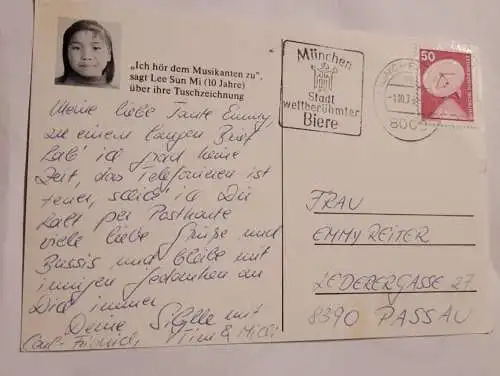 „Ich hör dem Musikanten zu",
sagt Lee Sun Mi (10 Jahre)
über ihre Tuschzeichnung
Meine liebe Tante Emmy,
zu einem langen Brief
hab' ich grad keine
Zeit, das Telefonieren ist
teuer, schick' ich Dir
halt per Postkarte
viele liebe Grüße und
Bussis und bleibe mit
innigen Gedanken an
Dich immer
Deine Sibylle mit
Carl-Friedrich, Tim & Milli
München
Stadt
weltberühmter
Biere
50
DEUTSCHE BUNDESPOST
FRAU
EMMY REITER
LEDERERGASSE 27
8390 PASSAU